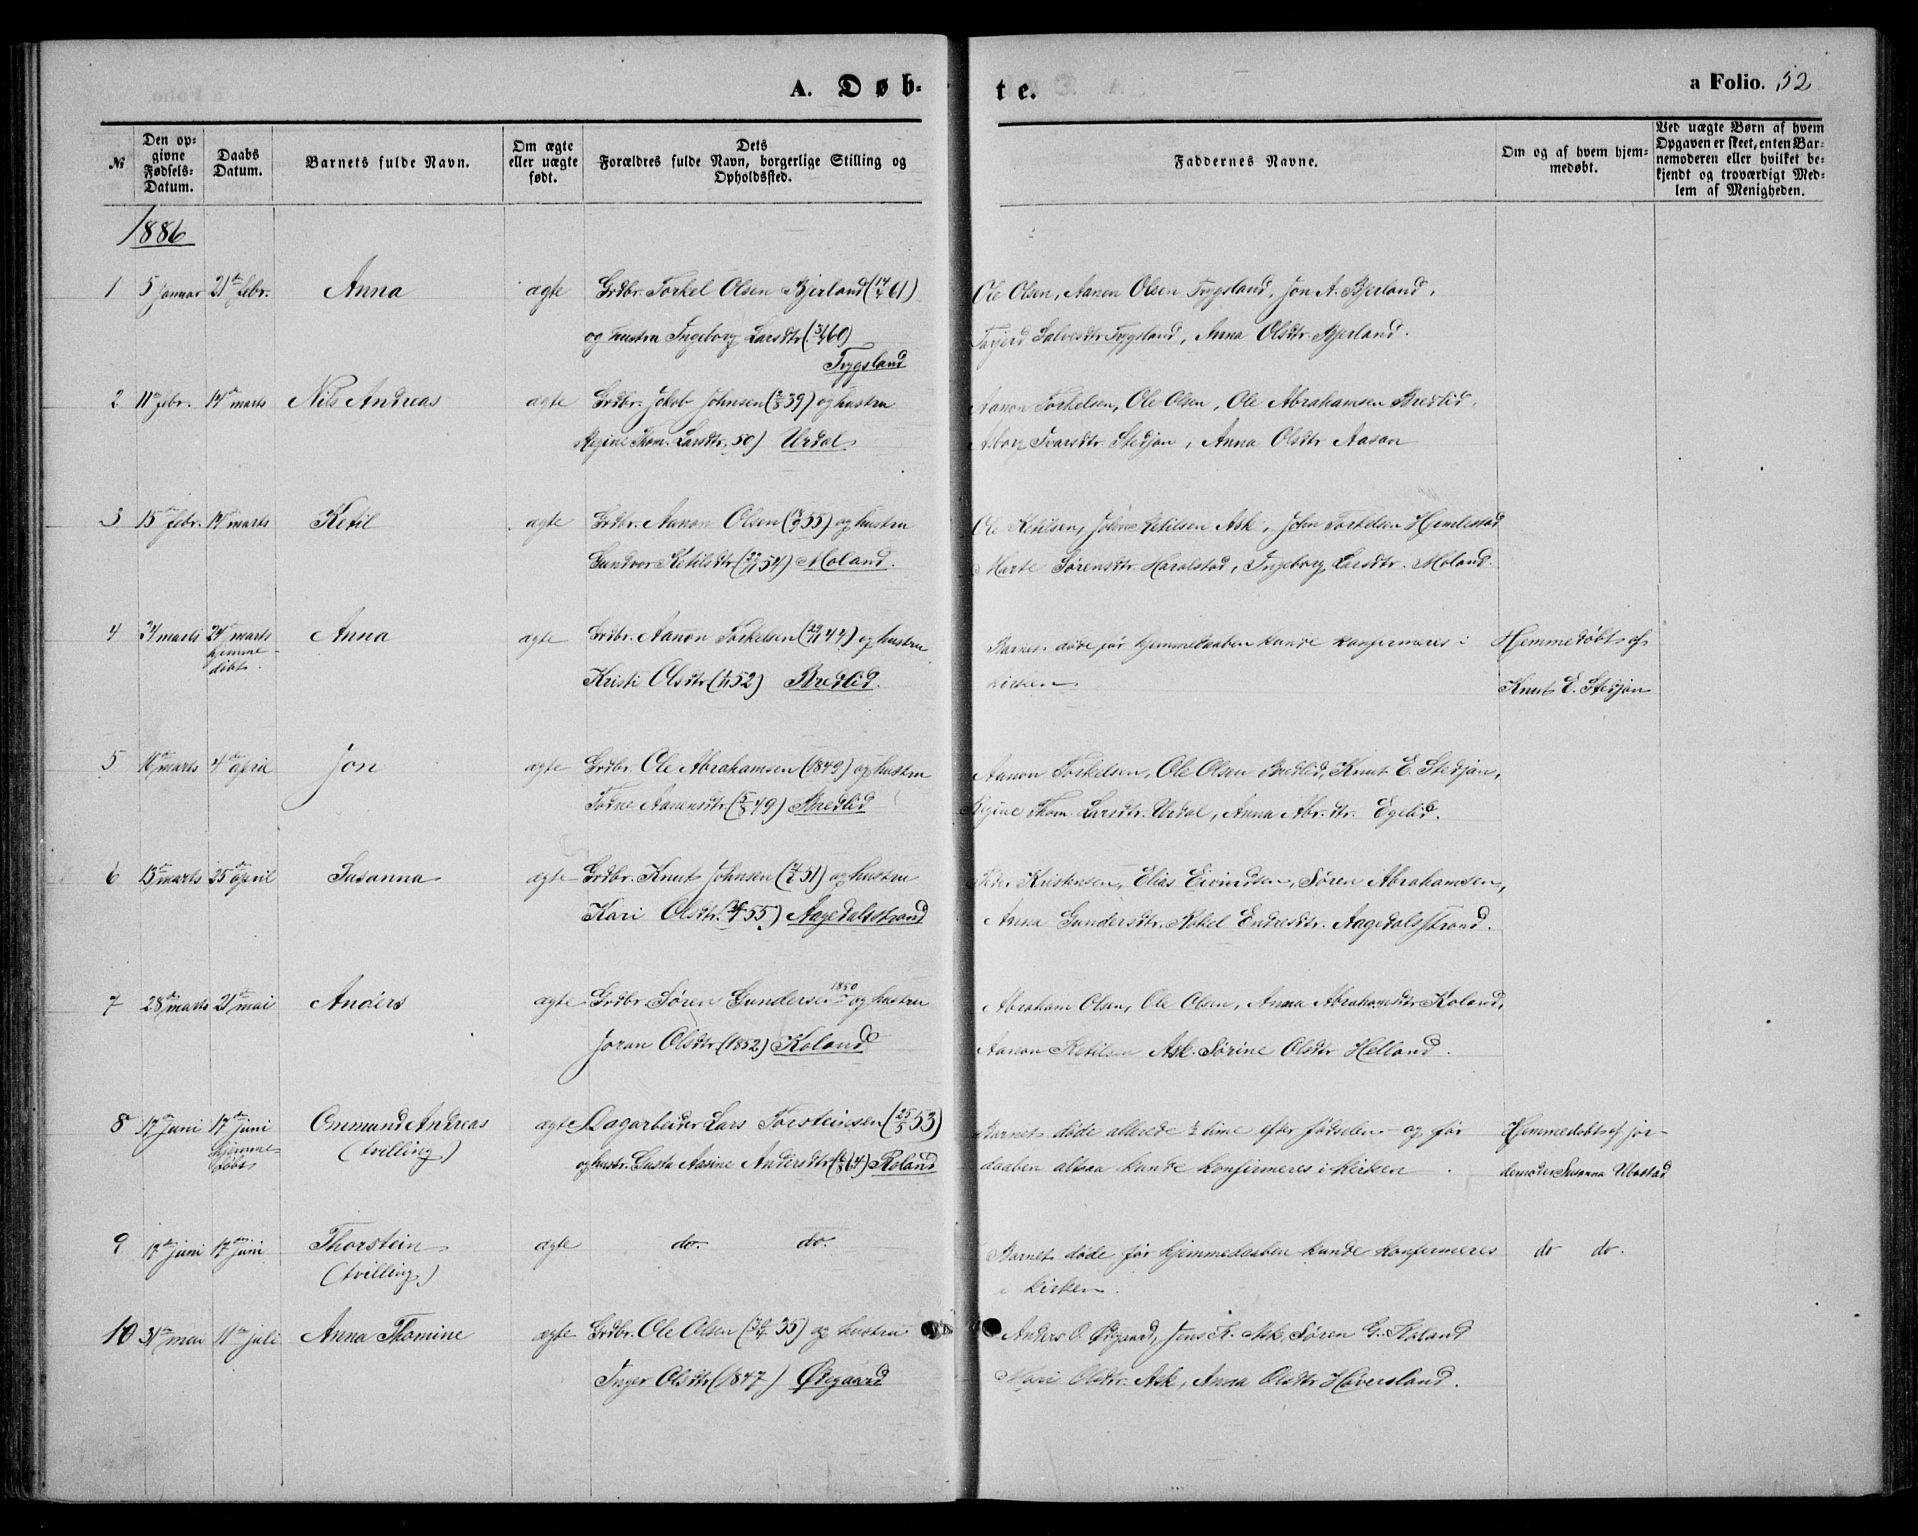 A. Døb-
te.
a Folio. 52
№
Den op-
givne
Fødsels-
Datum.
Daabs
Datum.
Barnets fulde Navn.
Om ægte
eller uægte
født.
Dets
Forældres fulde Navn, borgerlige Stilling og
Opholdssted.
Faddernes Navne.
Om og af hvem hjem-
medøbt.
Ved uægte Børn af hvem
Opgaven er skeet, enten Bar-
nemoderen eller hvilket be-
kjendt og troværdigt Med-
lem af Menigheden.
1886
1 5 Januar 21de febr. Anna ægte Grdbr. Torkel Olsen Bjerland (61) Ole Olsen, Aanen Olsen Trygsland, Jon A. Bjerland,
og hustru Ingeborg Larsdtr (60) Salvesdtr. Trygsland, Anna Olsdtr. Bjerland.
Trygsland
2 11te febr. 14de marts Nils Andreas ægte Grdbr. Jakob Johnsen (39) og hustru Aanon Torkelsen, Ole Olsen, Ole Abrahamsen Bredlid,
Regine Thom. Larsdtr. 50) Urdal. Asborg Ivarsdtr. Stedjan, Anna Olsdtr Aasan
3 15de febr. 14de marts Ketil ægte Grdbr. Aanon Olsen (55) og hustru Ole Ketilsen, Ketilsen Ask, John Torkelsen
Gundvor Ketilsdtr (54) Moland. Marte Sørensdtr. Haralstad, Ingeborg Larsdtr. Moland.
4 24 marts 24de marts Anna ægte Grdbr. Aanon Torkelsen (47) og hustru Barnet døde før hjemmedaaben kunde konfirmeres i Hjemmedøbt af
hjemme-
døbt.
Kristi Olsdtr (52) Bredlid. kirken Knut E. Stedjan
5 marts 4de april Jon ægte Grdbr. Ole Abrahamsen (1849) og hustru Aanon Torkelsen, Ole Olsen Bredlid, Knut E. Stedjan,
Torne Aanonsdtr. (49) Bredlid Regine Thom. Larsdtr. Urdal, Anna Abr.dtr. Egelid.
6 13de marts 25de april Susanna ægte Grdbr. Knut Johnsen (51) og hustru Peder Kristensen, Elias Eivindsen, Søren Abrahamsen,
Kari Olsdtr. (55) Aagedalsstrand Anna Gundersdtr. Rakel Endresdtr. Aagedalsstrand.
7 28de marts 21de mai Anders ægte Grdbr. Søren Gundersen 1850 og hustru Abraham Olsen, Ole Olsen, Anna Abrahamsdtr. Roland,
Joran Olsdtr (1852) Roland Aanon Ketilsen Ask. Sørine Olsdtr Helland.
8 17de Juni 17de juni Omund Andreas ægte Dagarbeider Lars Torsteinsen (25/5 53) Barnet døde allerede ½ time efter fødselen og før Hjemmedøbt af jor-
hjemme-
døbt
(tvilling) og hustr. Gusta Aasine Andersdtr (64) Roland daaben altsaa kunde konfirmeres i kirken. demoder Susanna Ubostad
9 17de juni 17de juni Thorstein ægte do. do. Barnet døde før hjemmedaaben kunde konfirmeres do do.
(tvilling) i kirken.
10 31te mai 11te juli Anna Thomine ægte Grdbr. Ole Olsen (35) og hustru Anders O. Øigaard, Jens K. Ask, Søren G. Roland
Inger Olsdtr (1847) Øigaard Mari Olsdtr. Ask, Anna Olsdtr Haversland.